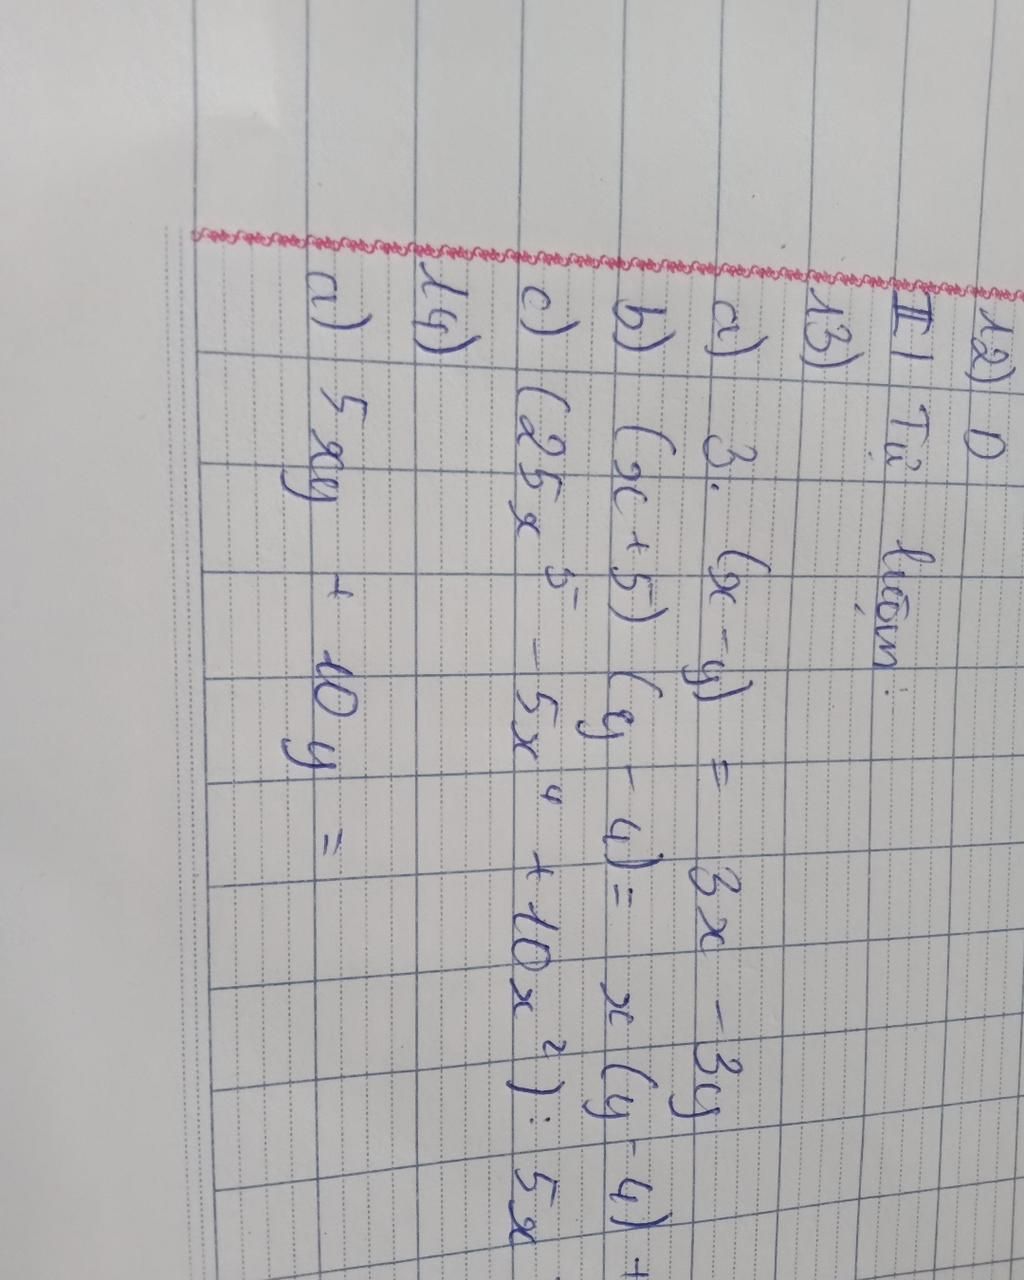 12) D
II) Tự luận:
13)
a) 3. (x - y) = 3x - 3y
b) (x + 5) (y - 4) = x (y - 4) +
c) (25x⁵ - 5x⁴ + 10x²) : 5x
14)
a) 5xy + 10y =